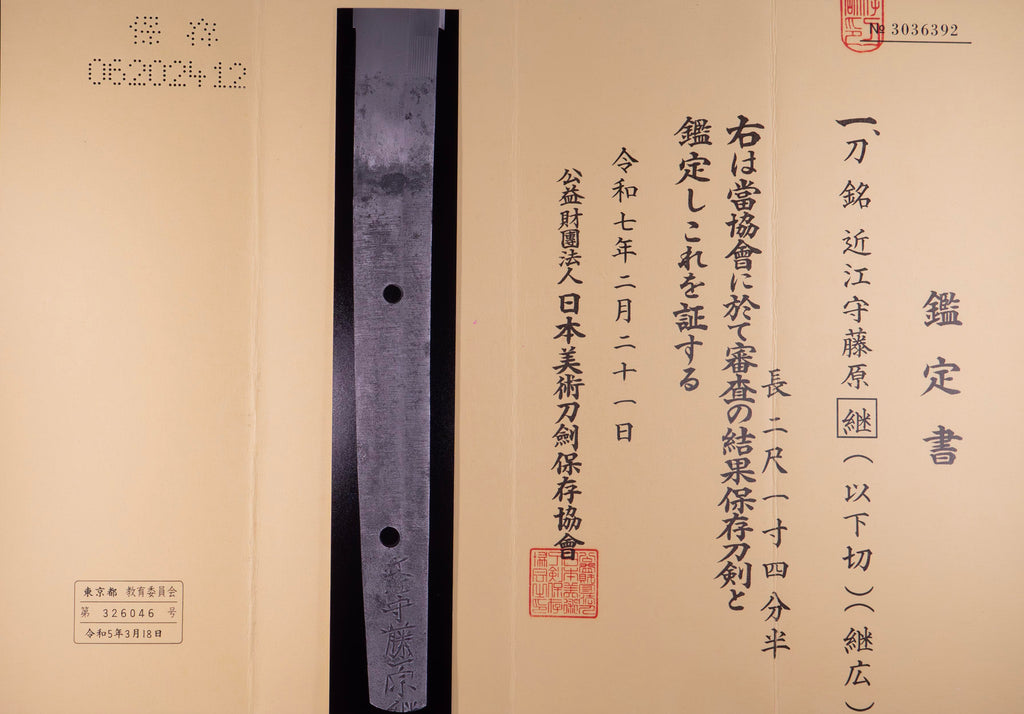 № 3036392
鑑定書
一、刀 銘 近江守藤原継（以下切）（継広）
長 二尺一寸四分半
右は當協會に於て審査の結果保存刀剣と
鑑定しこれを証する
令和七年二月二十一日
公益財團法人 日本美術刀劍保存協會
保存
062024 12
東京都 教育委員会
第 326046 号
令和5年3月18日
守藤原